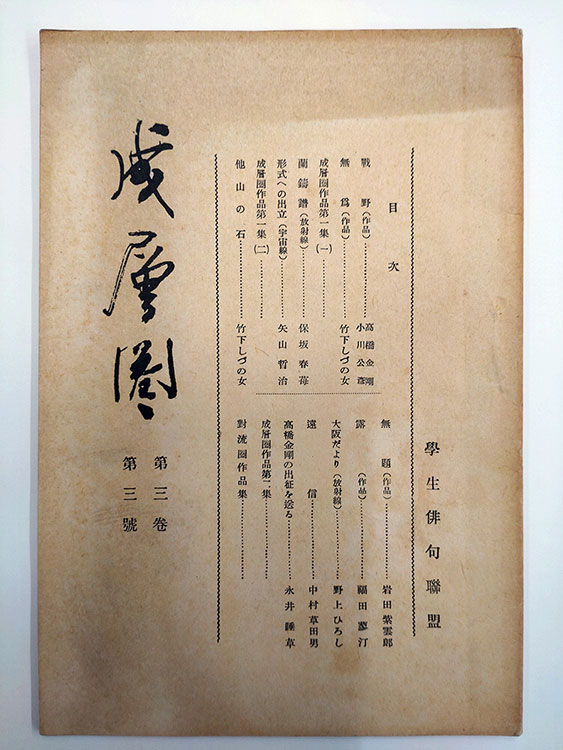 學生俳句聯盟
目次
戰野(作品)………高橋金剛
小川公彥
無爲(作品)………竹下しづの女
成層圈作品第一集(一)………
蘭鑄譜(放射線)………保坂春苺
形式への出立(宇宙線)………矢山哲治
成層圈作品第一集(二)………
他山の石………竹下しづの女
無題(作品)………岩田紫雲郎
露(作品)………福田蓼汀
大阪だより(放射線)………野上ひろし
遠信………中村草田男
高橋金剛の出征を送る………永井睡草
成層圈作品第二集………
對流圈作品集………
成層圈
第三卷
第三號